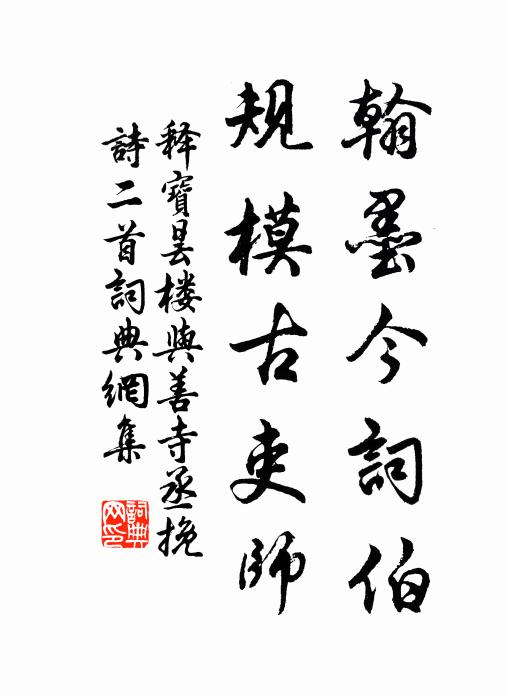 翰墨今詞伯
規模古吏師
释寶曇楼與善寺丞挽
詩二首詞典網集
詞典网印